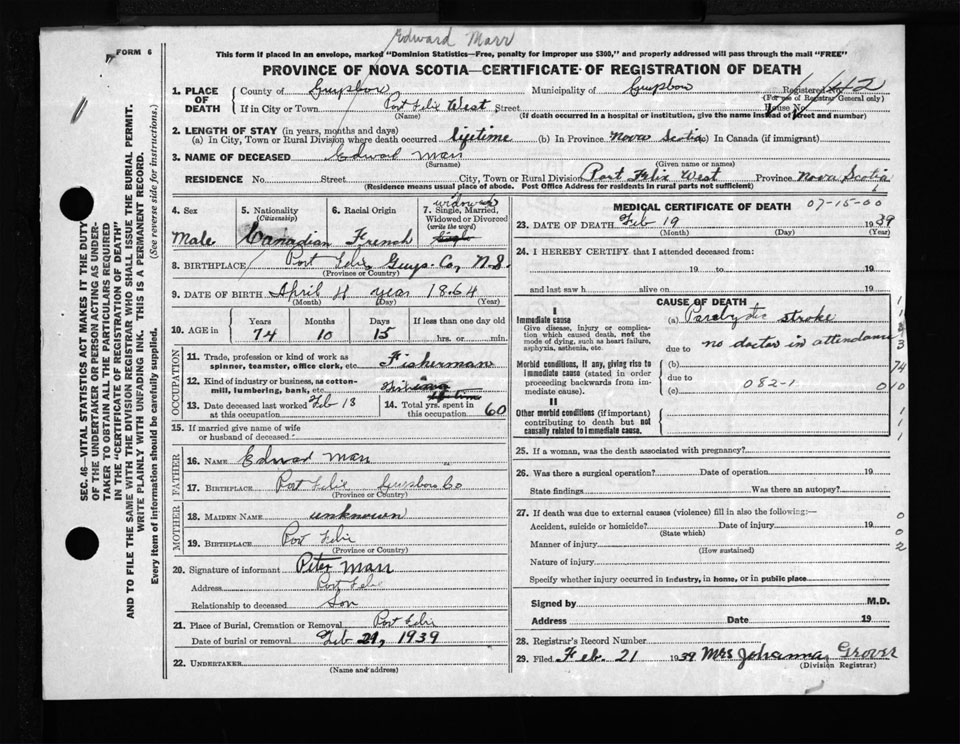 Edward Marr
FORM 6
This form if placed in an envelope, marked "Dominion Statistics—Free, penalty for improper use $300," and properly addressed will pass through the mail "FREE"
PROVINCE OF NOVA SCOTIA—CERTIFICATE OF REGISTRATION OF DEATH
SEC. 46—VITAL STATISTICS ACT MAKES IT THE DUTY
OF THE UNDERTAKER OR PERSON ACTING AS UNDER-
TAKER TO OBTAIN ALL THE PARTICULARS REQUIRED
IN THE "CERTIFICATE OF REGISTRATION OF DEATH"
AND TO FILE THE SAME WITH THE DIVISION REGISTRAR WHO SHALL ISSUE THE BURIAL PERMIT.
WRITE PLAINLY WITH UNFADING INK. THIS IS A PERMANENT RECORD.
Every item of information should be carefully supplied. (See reverse side for instructions.)
1. PLACE OF DEATH
County of Guysboro Municipality of Guysboro Registered No. 2
(For use of Registrar General only)
If in City or Town Port Felix West Street House No.
(Name) (If death occurred in a hospital or institution, give the name instead of street and number)
2. LENGTH OF STAY (in years, months and days)
(a) In City, Town or Rural Division where death occurred lifetime (b) In Province Nova Scotia (c) In Canada (if immigrant)
3. NAME OF DECEASED Edward Marr
(Surname) (Given name or names)
RESIDENCE No. Street City, Town or Rural Division Port Felix West Province Nova Scotia
(Residence means usual place of abode. Post Office Address for residents in rural parts not sufficient)
4. Sex Male
5. Nationality (Citizenship) Canadian
6. Racial Origin French
7. Single, Married, Widowed or Divorced (write the word) widower Single
8. BIRTHPLACE Port Felix, Guys. Co, N.S.
(Province or Country)
9. DATE OF BIRTH April 4 year 1864
(Month) (Day) (Year)
10. AGE in Years Months Days If less than one day old
74 10 15 hrs. or min.
OCCUPATION
11. Trade, profession or kind of work as spinner, teamster, office clerk, etc. Fisherman
12. Kind of industry or business, as cotton-mill, lumbering, bank, etc.
13. Date deceased last worked at this occupation Feb 13
14. Total yrs. spent in this occupation 60
15. If married give name of wife or husband of deceased
FATHER
16. NAME Edward Marr
17. BIRTHPLACE Port Felix Guysboro Co
(Province or Country)
MOTHER
18. MAIDEN NAME unknown
19. BIRTHPLACE Port Felix
(Province or Country)
20. Signature of informant Peter Marr
Address Port Felix
Relationship to deceased Son
21. Place of Burial, Cremation or Removal Port Felix
Date of burial or removal Feb 21, 1939
22. UNDERTAKER
(Name and address)
MEDICAL CERTIFICATE OF DEATH 07-15-00
23. DATE OF DEATH Feb 19 1939
(Month) (Day) (Year)
24. I HEREBY CERTIFY that I attended deceased from:
19 to 19
and last saw h alive on 19
CAUSE OF DEATH
I
Immediate cause
Give disease, injury or complication which caused death, not the mode of dying, such as heart failure, asphyxia, asthenia, etc.
(a) stroke
due to no doctor in attendance
Morbid conditions, if any, giving rise to immediate cause (stated in order proceeding backwards from immediate cause).
(b)
due to 082-1
(c)
II
Other morbid conditions (if important) contributing to death but not causally related to immediate cause.
25. If a woman, was the death associated with pregnancy?
26. Was there a surgical operation? Date of operation 19
State findings Was there an autopsy?
27. If death was due to external causes (violence) fill in also the following:—
Accident, suicide or homicide? Date of injury 19
(State which)
Manner of injury
(How sustained)
Nature of injury
Specify whether injury occurred in industry, in home, or in public place
Signed by M.D.
Address Date 19
28. Registrar's Record Number
29. Filed Feb. 21 1939 Mrs Johanna Grover
(Division Registrar)